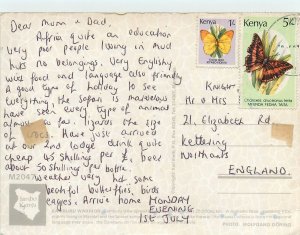 Dear Mum + Dad,
Africa quite an education
very poor people living in mud
huts no belongings. Very English
with food and language also friendly
A good type of holiday to see
everything, the safari is marvelous
have seen every type of animal
almost so far, lizards the size
of Have just arrived
at our 2nd lodge drink quite
cheap 45 Shillings per £, beer
about 50 Shillings per bottle.
Weather very hot some
beautiful butterflies, birds
Arrive home MONDAY
EVENING
1ST JULY
Jambo!
Kenya
Kenya
1/-
5/-
Mr & Mrs
21, Elizabeth Rd
Kettering
Northants
ENGLAND.
PHOTO: WOLFGANG DÖRING